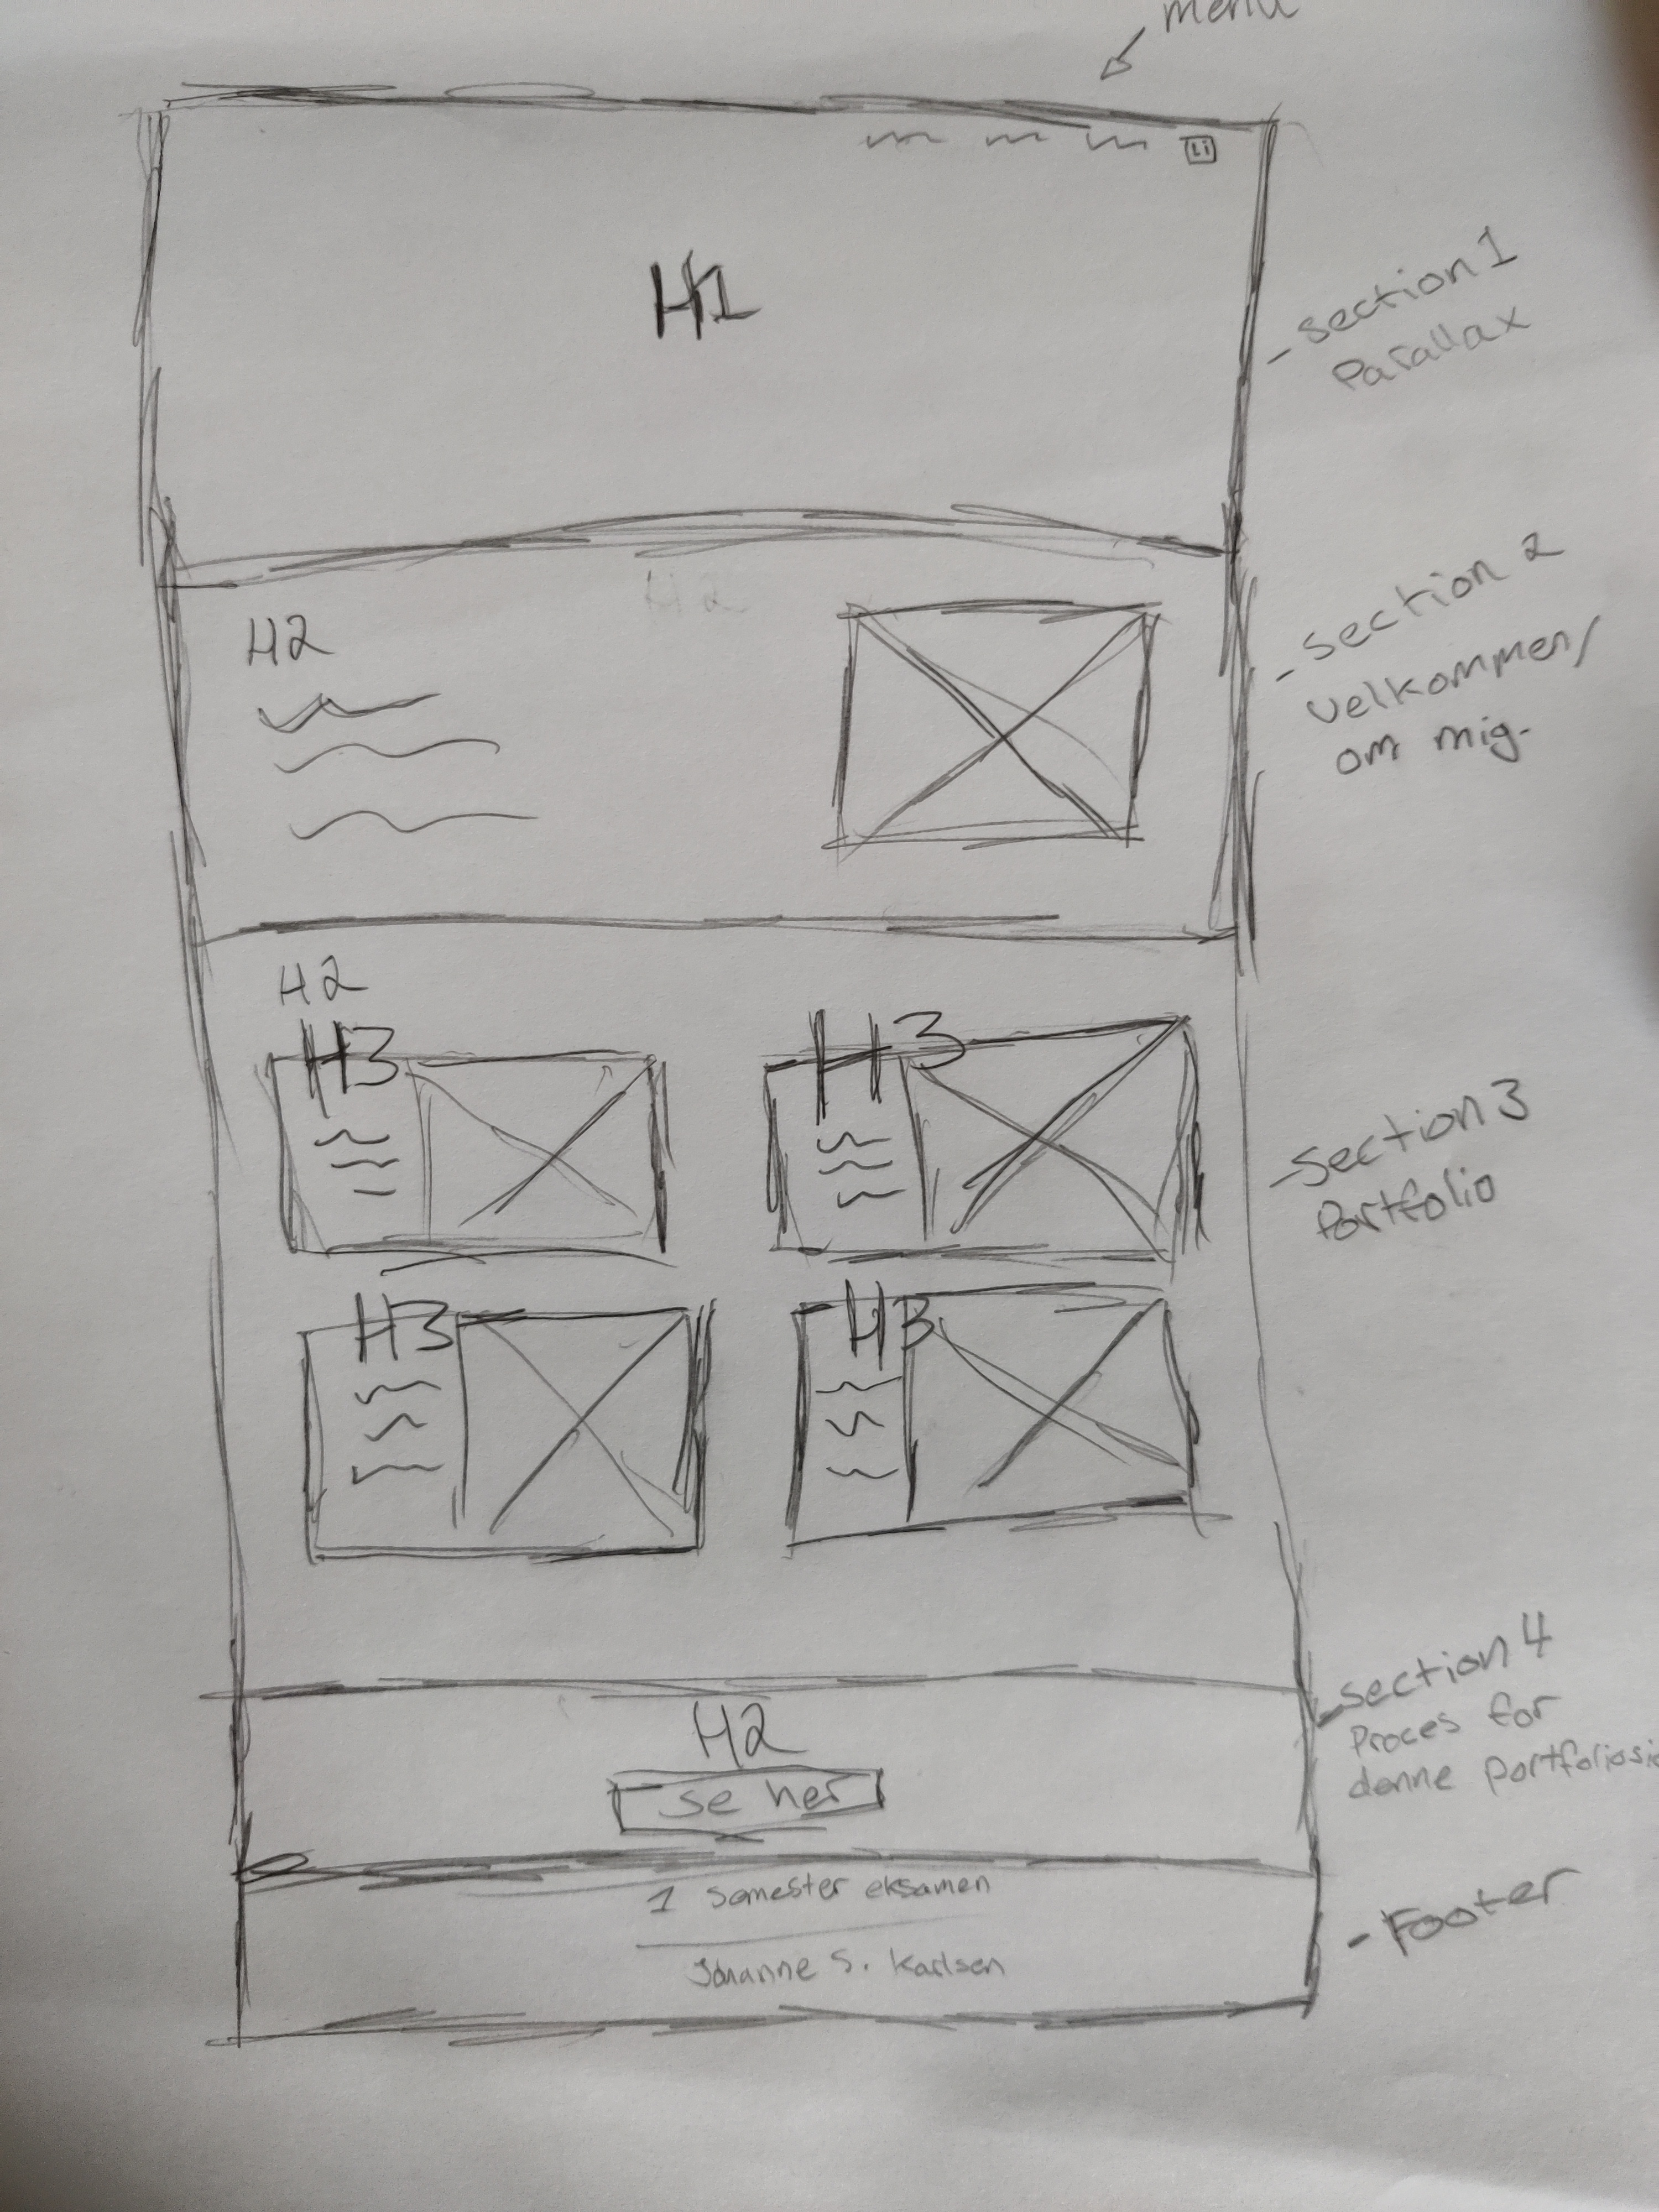 menu
Li
H1
- Section 1
Parallax
H2
H2
- Section 2
Velkommen/
om mig.
H2
H3
H3
- Section 3
Portfolio
H3
H3
- Section 4
Proces for
denne
H2
se her
1 semester eksamen
Johanne S. Karlsen
- Footer